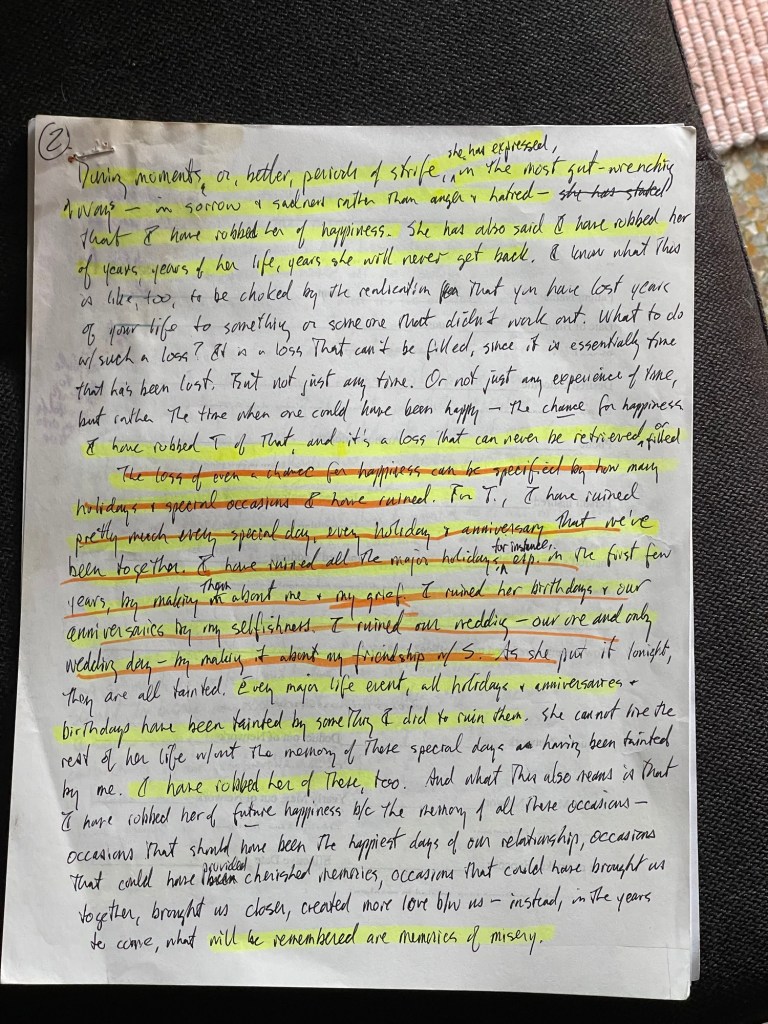 ②
she has expressed,
During moments, or, better, periods of strife, in the most gut-wrenching
of ways – in sorrow & sadness rather than anger & hatred – she has stated
that I have robbed her of happiness. She has also said I have robbed her
of years, years of her life, years she will never get back. I know what this
is like, too, to be choked by the realization that you have lost years
of your life to something or someone that didn't work out. What to do
w/ such a loss? It is a loss that can't be filled, since it is essentially time
that has been lost. But not just any time. Or not just any experience of time,
but rather the time when one could have been happy – the chance for happiness
I have robbed T of that, and it's a loss that can never be retrieved or filled
The loss of even a chance for happiness can be specified by how many
holidays & special occasions I have ruined. For T., I have ruined
pretty much every special day, every holiday & anniversary that we've
been together. I have ruined all the major holidays, for instance, esp. in the first few
years, by making them about me & my grief. I ruined her birthdays & our
anniversaries by my selfishness. I ruined our wedding – our one and only
wedding day – by making it about my friendship w/ S. As she put it tonight,
they are all tainted. Every major life event, all holidays & anniversaries &
birthdays have been tainted by something I did to ruin them. She cannot live the
rest of her life w/out the memory of these special days as having been tainted
by me. I have robbed her of these, too. And what this also means is that
I have robbed her of future happiness b/c the memory of all these occasions –
occasions that should have been the happiest days of our relationship, occasions
that could have provided cherished memories, occasions that could have brought us
together, brought us closer, created more love b/w us – instead, in the years
to come, what will be remembered are memories of misery.